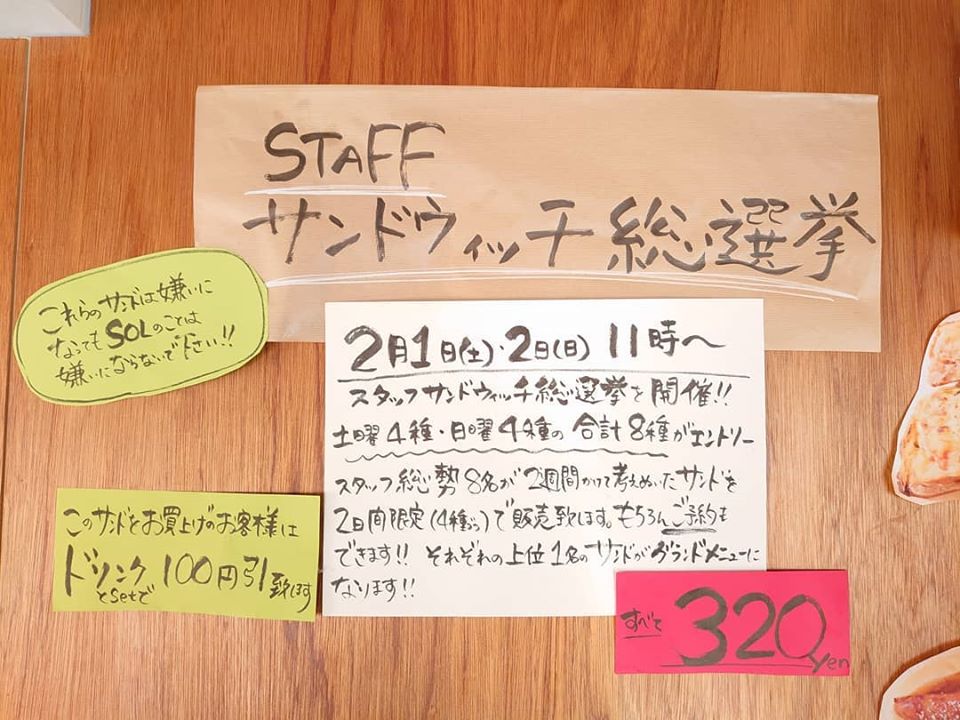 STAFF
サンドウィッチ総選挙
これらのサンドは嫌いに
なってもSOLのことは
嫌いにならないで下さい!!
2月1日(土)・2日(日) 11時〜
スタッフサンドウィッチ総選挙を開催!!
土曜4種・日曜4種の合計8種がエントリー
スタッフ総勢8名が2週間かけて考えぬいたサンドを
2日間限定(4種ずつ)で販売致します。もちろんご予約も
できます!! それぞれの上位1名のサンドがグランドメニューに
なります!!
このサンドをお買上げのお客様は
ドリンク
とsetで
100円引致します
すべて
320
yen